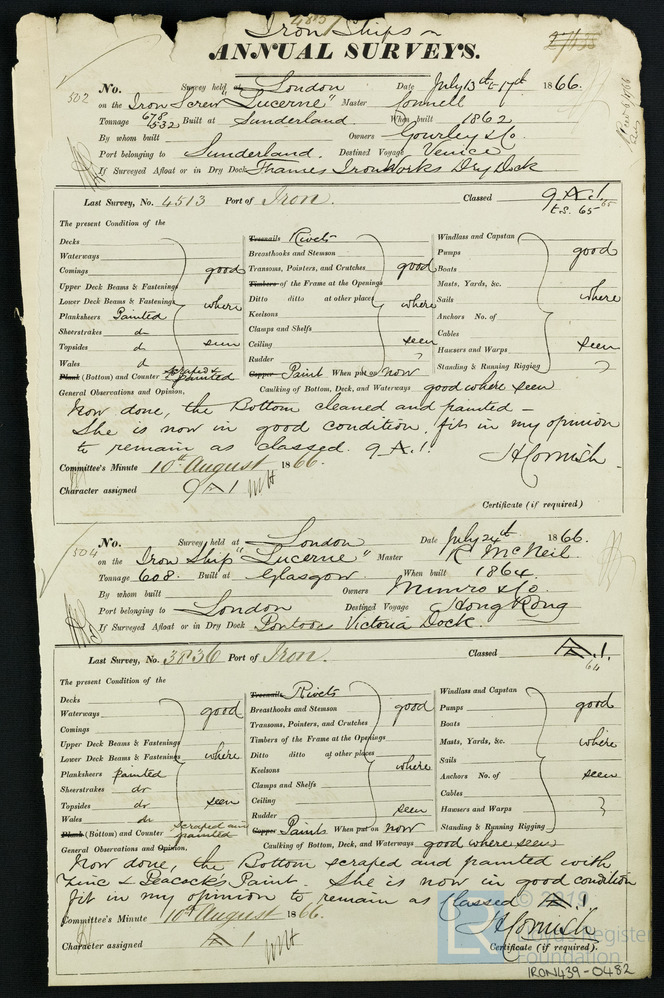 Iron Ships
ANNUAL SURVEYS.
502
No. Survey held at London Date July 13th & 17th 1866.
on the Iron Screw "Lucerne" Master Connell
Tonnage 678 532 Built at Sunderland When built 1862
By whom built Owners Gourley & Co.
Port belonging to Sunderland. Destined Voyage Venice
If Surveyed Afloat or in Dry Dock Thames Iron Works Dry Dock
Last Survey, No. 4513 Port of Iron. Classed 9 A.1.
t.S. 65
The present Condition of the
Decks Treenails Rivets Windlass and Capstan
Waterways Breasthooks and Stemson Pumps good
Comings good Transoms, Pointers, and Crutches good Boats
Upper Deck Beams & Fastenings Timbers of the Frame at the Openings Masts, Yards, &c.
Lower Deck Beams & Fastenings where Ditto ditto at other places where Sails where
Planksheers Painted Keelsons Anchors No. of
Sheerstrakes do Clamps and Shelfs Cables
Topsides do seen Ceiling seen Hawsers and Warps seen
Wales do Rudder Standing & Running Rigging
Plank (Bottom) and Counter scraped & painted Copper Paint When put on now
General Observations and Opinion, Caulking of Bottom, Deck, and Waterways good where seen
Now done, the Bottom cleaned and painted -
She is now in good condition, fit in my opinion
to remain as classed. 9 A.1.
J H Cornish
Committee's Minute 10th August 1866.
Character assigned 9 A 1
Certificate (if required)
504
No. Survey held at London Date July 24th 1866.
on the Iron Ship "Lucerne" Master R. McNeil
Tonnage 608. Built at Glasgow When built 1864.
By whom built Owners Munro & Co.
Port belonging to London Destined Voyage Hong Kong
If Surveyed Afloat or in Dry Dock Pontoon Victoria Dock.
Last Survey, No. 3836 Port of Iron. Classed A.1.
64
The present Condition of the
Decks Treenails Rivets Windlass and Capstan
Waterways good Breasthooks and Stemson good Pumps good
Comings Transoms, Pointers, and Crutches Boats
Upper Deck Beams & Fastenings Timbers of the Frame at the Openings Masts, Yards, &c. where
Lower Deck Beams & Fastenings where Ditto ditto at other places where Sails
Planksheers painted Keelsons Anchors No. of seen
Sheerstrakes do Clamps and Shelfs Cables
Topsides do seen Ceiling seen Hawsers and Warps
Wales do Rudder Standing & Running Rigging
Plank (Bottom) and Counter scraped and painted Copper Paint When put on now
General Observations and Opinion. Caulking of Bottom, Deck, and Waterways good where seen
Now done, the Bottom scraped and painted with
Zinc & Peacock's Paint. She is now in good condition
fit in my opinion to remain as Classed A.1.
J H Cornish
Committee's Minute 10th August 1866.
Character assigned A 1
Certificate (if required).
© 2019
LR
Lloyd's Register
Foundation
IRON439-0482